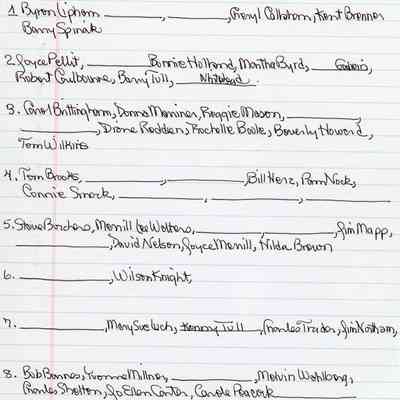 1. Byron Lipham ________, ________, Cheryl Callaham, Kent Brenner
Barry Spinak
2. Joyce Pellit, ________ Bonnie Holland, Martha Byrd, ________,
Robert Coulbourne, Barry Tull, Whitehead.
3. Carol Brittingham, Donna Marriner, Reggie Mason, ________,
________, Diane Redden, Rochelle Boole, Beverly Howard,
Tom Wilkins
4. Tom Brooks, ________, ________, Bill Herz, Pam Nock,
Connie Smack, ________, ________, ________
5. Steve Borchers, Merrill Lee Walters, ________, ________, Jim Mapp,
________, David Nelson, Joyce Merrill, Hilda Brown
6. ________, Wilson Knight,
7. ________, Mary Sue Lach, Kenny Tull, Charles Trader, Jim Northam,
8. Bob Bonnes, Yvonne Milliner, ________, Melvin Wohlberg,
Charles Shelton, Jo Ellen Carter, Carole Peacock ________